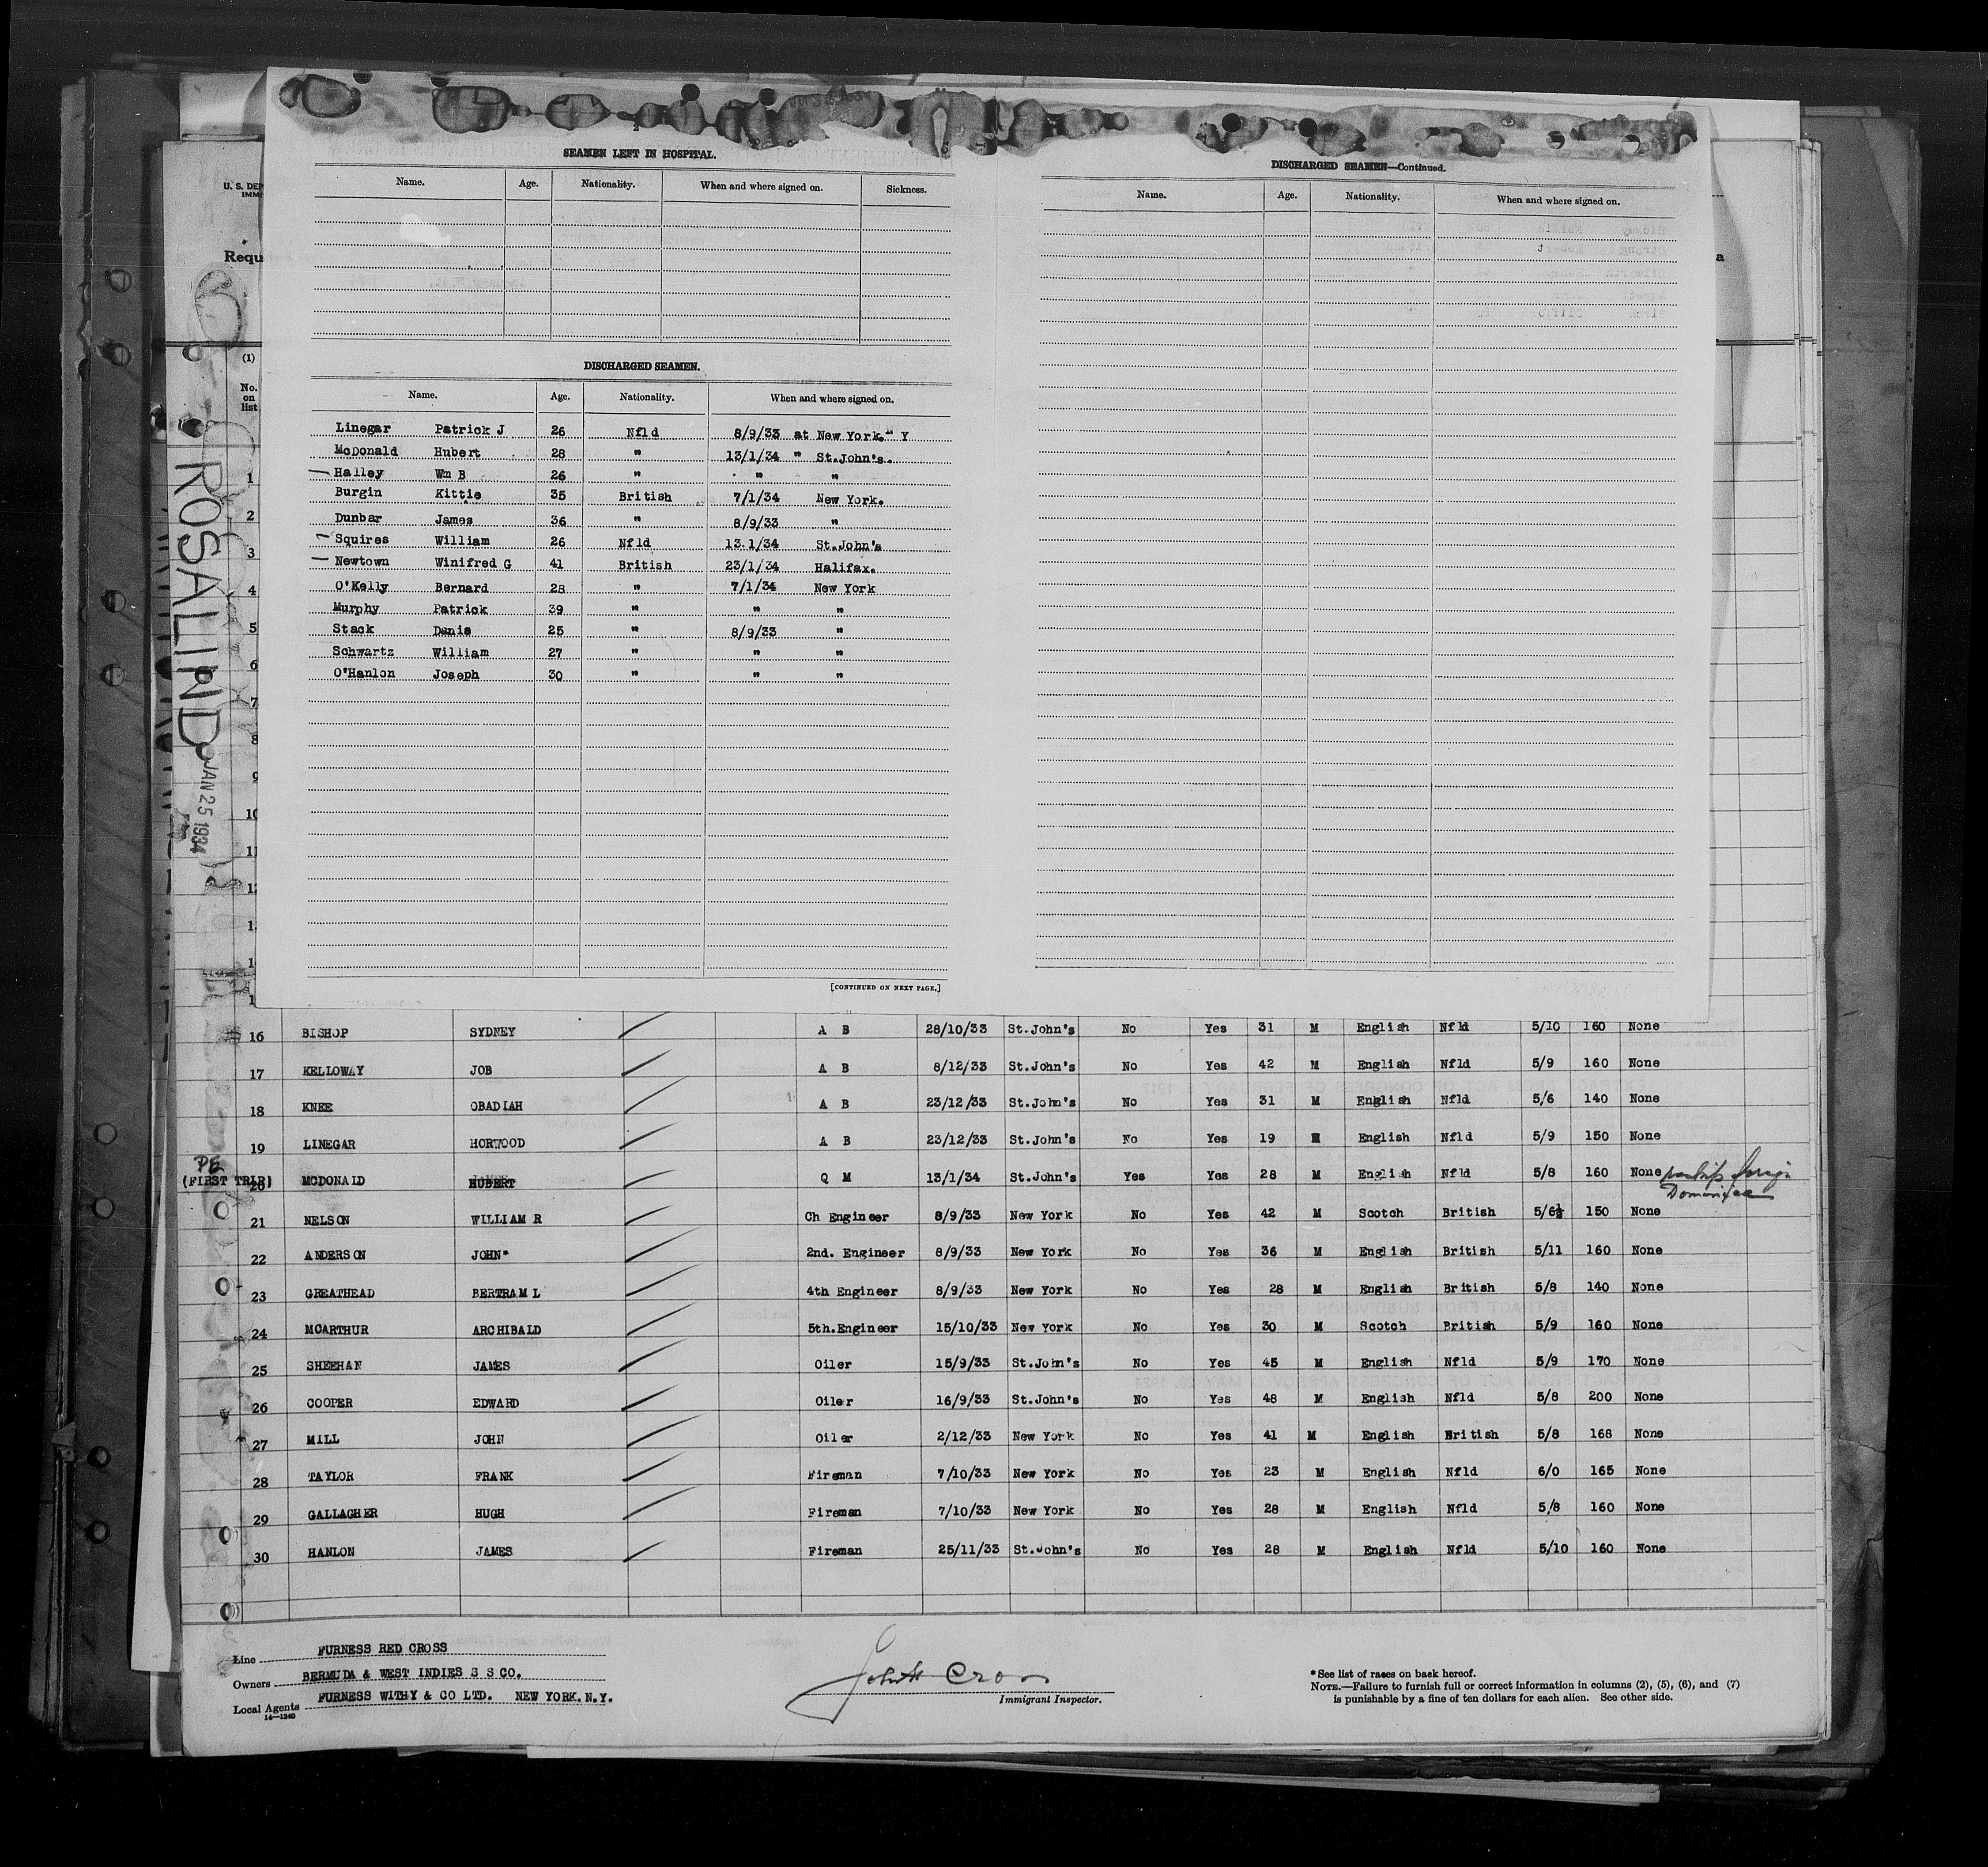 SEAMEN LEFT IN HOSPITAL.
Name. Age. Nationality. When and where signed on. Sickness.
DISCHARGED SEAMEN.
Name. Age. Nationality. When and where signed on.
Linegar Patrick J 26 Nfld 8/9/33 at New York." Y
McDonald Hubert 28 " 13/1/34 " St.John's.
Halley Wm B 26 " " "
Burgin Kittie 35 British 7/1/34 New York.
Dunbar James 36 " 8/9/33 "
Squires William 26 Nfld 13.1/34 St.John's
Newtown Winifred G 41 British 23/1/34 Halifax.
O'Kelly Bernard 28 " 7/1/34 New York
Murphy Patrick 39 " " "
Stack Denis 25 " 8/9/33 "
Schwartz William 27 " " "
O'Hanlon Joseph 30 " " "
[CONTINUED ON NEXT PAGE.]
DISCHARGED SEAMEN—Continued.
Name. Age. Nationality. When and where signed on.
U. S. DEP
IMM
Requ
a
(1)
No.
on
list
1
2
3
4
5
6
7
8
9
10
11
12
ROSALIND
JAN 25 1934
16 BISHOP SYDNEY A B 28/10/33 St.John's No Yes 31 M English Nfld 5/10 160 None
17 KELLOWAY JOB A B 8/12/33 St.John's No Yes 42 M English Nfld 5/9 160 None
18 KNEE OBADIAH A B 23/12/33 St.John's No Yes 31 M English Nfld 5/6 140 None
19 LINEGAR HORWOOD A B 23/12/33 St.John's No Yes 19 M English Nfld 5/9 150 None
PE
(FIRST TRIP) 20 MCDONALD HUBERT Q M 13/1/34 St.John's Yes Yes 28 M English Nfld 5/8 160 None
21 NELSON WILLIAM R Ch Engineer 8/9/33 New York No Yes 42 M Scotch British 5/6½ 150 None
22 ANDERSON JOHN* 2nd. Engineer 8/9/33 New York No Yes 36 M English British 5/11 160 None
23 GREATHEAD BERTRAM L 4th Engineer 8/9/33 New York No Yes 28 M English British 5/8 140 None
24 MCARTHUR ARCHIBALD 5th.Engineer 15/10/33 New York No Yes 30 M Scotch British 5/9 160 None
25 SHEEHAN JAMES Oiler 15/9/33 St.John's No Yes 45 M English Nfld 5/9 170 None
26 COOPER EDWARD Oiler 16/9/33 St.John's No Yes 48 M English Nfld 5/8 200 None
27 MILL JOHN Oiler 2/12/33 New York No Yes 41 M English British 5/8 168 None
28 TAYLOR FRANK Fireman 7/10/33 New York No Yes 23 M English Nfld 6/0 165 None
29 GALLAGHER HUGH Fireman 7/10/33 New York No Yes 28 M English Nfld 5/8 160 None
30 HANLON JAMES Fireman 25/11/33 St.John's No Yes 28 M English Nfld 5/10 160 None
Line FURNESS RED CROSS
Owners BERMUDA & WEST INDIES S S CO.
Local Agents FURNESS WITHY & CO LTD. NEW YORK.N.Y.
14—1240
Immigrant Inspector.
*See list of races on back hereof.
NOTE.—Failure to furnish full or correct information in columns (2), (5), (6), and (7)
is punishable by a fine of ten dollars for each alien. See other side.